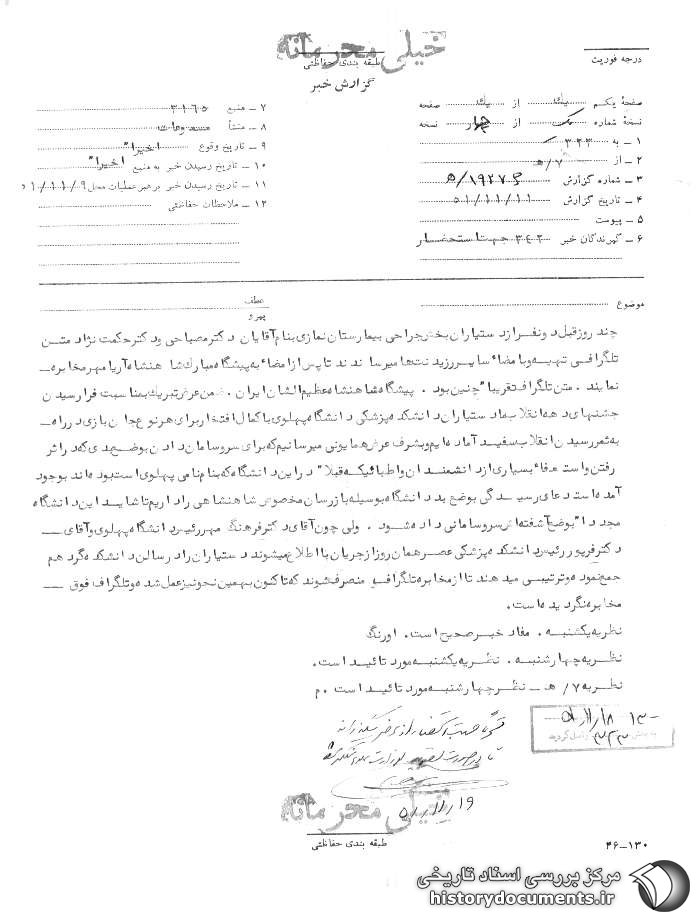 خیلی محرمانه
طبقه بندی حفاظتی
گزارش خبر
درجه فوریت
صفحه یکم یك از یك صفحه
نسخه شماره یک از چهار نسخه
۱ ـ به ۳۲۳
۲ ـ از ۷/ه
۳ ـ شماره گزارش
۴ ـ تاریخ گزارش ۵۱/۱۱/۱۱
۵ ـ پیوست
۶ ـ گیرندگان خبر ۳٤۲ جهت استحضار
۷ ـ منبع ۳۱٦۵
۸ ـ منشأ مسموعات
۹ ـ تاریخ وقوع اخیرا"
۱۰ ـ تاریخ رسیدن خبر به منبع اخیرا"
۱۱ ـ تاریخ رسیدن خبر برهبر عملیات محل ۵۱/۱۱/۹
۱۲ ـ ملاحظات حفاظتی
موضوع
عطف
پیرو
چند روز قبل دو نفر از دستیاران بخش جراحی بیمارستان نمازی بنام آقایان دکتر مصباحی و دکتر حکمت نژاد متن
تلگرافی تهیه و بامضاء سایر رزیدنت ها میرسانند تا پس از امضاء به پیشگاه مبارک شاهنشاه آریا مهر مخابره ـ
نمایند . متن تلگراف تقریبا" چنین بود . پیشگاه شاهنشاه عظیم الشان ایران . ضمن عرض تبریك بمناسبت فرا رسیدن
جشنهای دهه انقلاب ما دستیاران دانشکده پزشکی دانشگاه پهلوی با کمال افتخار برای هر نوع جان بازی در راه ـ
به ثمر رسیدن انقلاب سفید آماده ایم و بشرف عرض همایونی میرسانیم که برای سر و سامان دادن بوضع بدی که در اثر
رفتن و استعفاء بسیاری از دانشمندان و اطبائیکه قبلا" در این دانشگاه که بنام نامی پهلوی است بوده اند بوجود
آمده استدعای رسیدگی بوضع بد دانشگاه بوسیله بازرسان مخصوص شاهنشاهی را داریم تا شاید این دانشگاه
مجددا" بوضع آشفته اش سر و سامانی داده شود . ولی چون آقای دکتر فرهنگ مهر رئیس دانشگاه پهلوی و آقای ــ
دکتر فرپور رئیس دانشکده پزشکی عصر همان روز از جریان با اطلاع میشوند دستیاران را در سالن دانشکده گرد هم
جمع نموده و ترتیبی میدهند تا از مخابره تلگراف منصرف شوند که تاکنون بهمین نحو نیز عمل شده و تلگراف فوق ــ
مخابره نگردیده است .
نظریه یکشنبه . مفاد خبر صحیح است . اورنگ
نظریه چهارشنبه . نظریه یکشنبه مورد تائید است .
نظریه ۷/ه ـ نظر چهارشنبه مورد تائید است . م
۵۱/۱۱/۱۹
خیلی محرمانه
طبقه بندی حفاظتی
۴۶-۱۳۰
مرکز بررسی اسناد تاریخی
historydocuments.ir